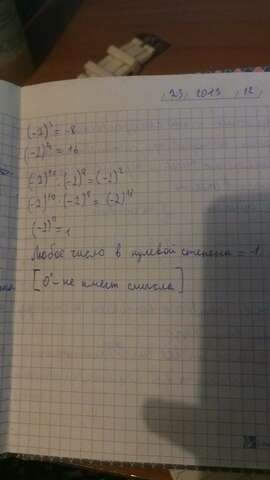 23 2013 12
(-2)³ = -8
(-2)⁴ = 16
(-2)¹⁰ : (-2)⁸ = (-2)²
(-2)¹⁰ · (-2)⁸ = (-2)¹⁸
(-2)⁰ = 1
Любое число в нулевой степени = 1
[0⁰ - не имеет смысла]